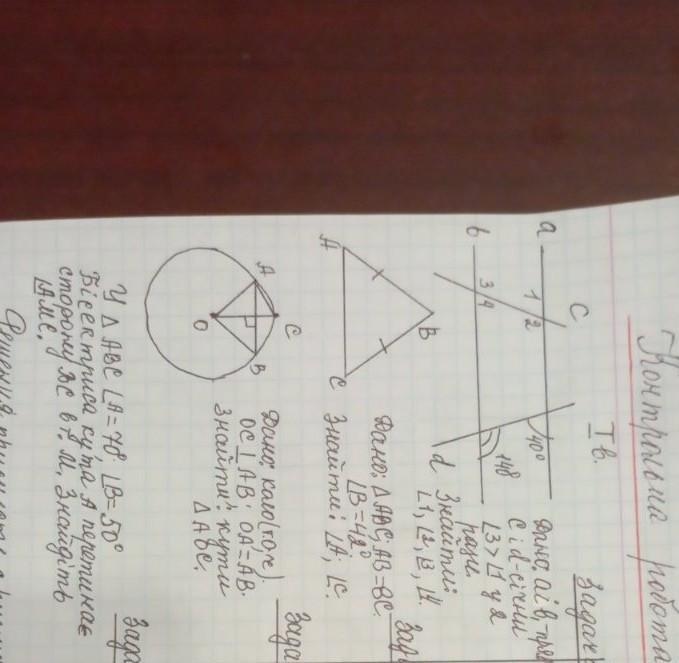 Контрольна робота
I в.
Задач
a
b
c
d
1 2
3 4
40°
140
Дано: a і b, пря
c і d - січні
∠3 > ∠1 у 2
рази.
Знайти:
∠1, ∠2, ∠3, ∠4.
Зад
A
B
C
Дано: △ABC; AB=BC.
∠B=42°
Знайти: ∠A; ∠C.
Зада
A
B
C
O
Дано: коло (т.О; r).
OC ⊥ AB; OA=AB.
Знайти: кути
△ABC.
Зада
У △ABC ∠A=70°. ∠B=50°
Бісектриса кута A перетинає
сторону BC в т. M. Знайдіть
∠AMC.